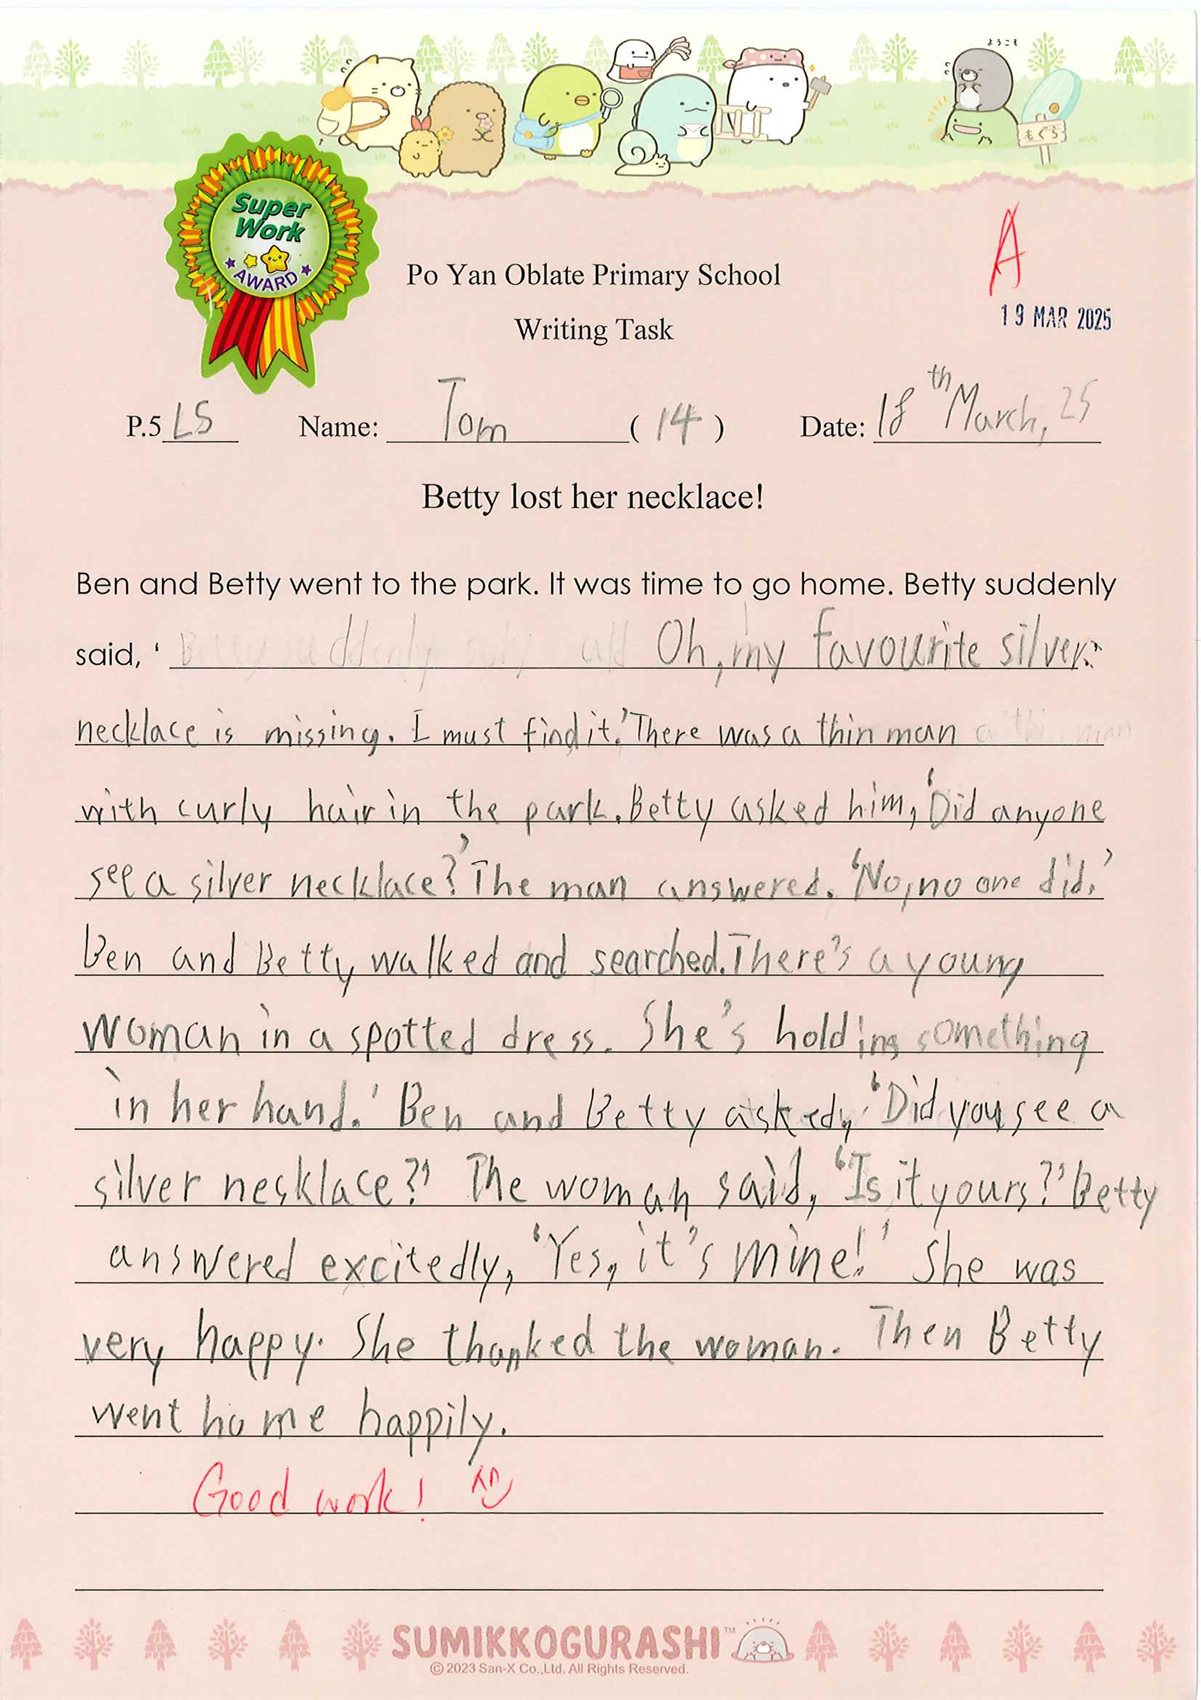 ようこそ
もぐら
Super
Work
AWARD
A
Po Yan Oblate Primary School
19 MAR 2025
Writing Task
P.5 LS Name: Tom ( 14 ) Date: 18th March, 25
Betty lost her necklace!
Ben and Betty went to the park. It was time to go home. Betty suddenly
said, ‘ Oh, my favourite silver
necklace is missing. I must find it.’ There was a thin man
with curly hair in the park. Betty asked him, ‘Did anyone
see a silver necklace?’ The man answered. ‘No, no one did.’
Ben and Betty walked and searched. There's a young
woman in a spotted dress. She's holding something
in her hand.’ Ben and Betty asked, ‘Did you see a
silver necklace?’ The woman said, ‘Is it yours?’ Betty
answered excitedly, ‘Yes, it's mine!’ She was
very happy. She thanked the woman. Then Betty
went home happily.
Good work!
SUMIKKOGURASHI™
©2023 San-X Co.,Ltd. All Rights Reserved.